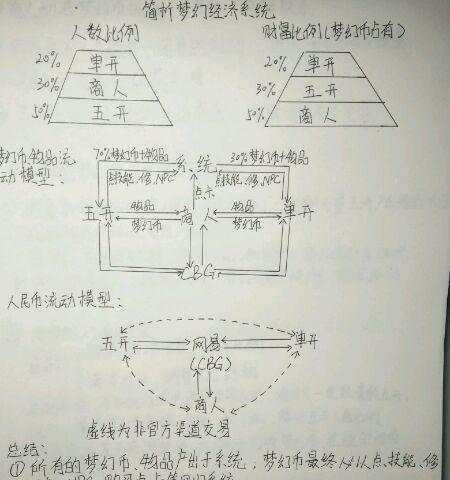 简析梦幻经济系统
人数比例 财富比例(梦幻币占有)
20% 单开 20% 单开
30% 商人 30% 五开
50% 五开 50% 商人
梦幻币、物品流
动模型：
70%梦幻币+物品 系统 30%梦幻币+物品
点技能、修、NPC 点卡 点技能、修、NPC
五开 物品 商人 物品 单开
梦幻币 梦幻币
CBG
人民币流动模型：
五开 网易 单开
(CBG)
商人
虚线为非官方渠道交易
总结：
① 所有的梦幻币、物品产出于系统；梦幻币最终从人点、技能、修